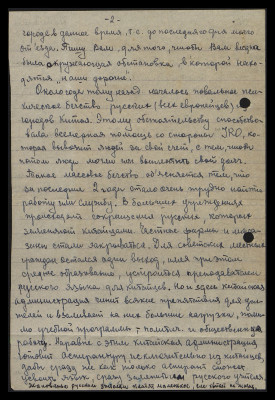 -2-
города в данное время, т.е. до последнего дня моего
отъезда. Пишу Вам для того, чтобы Вам видна
была окружающая обстановка, в которой нахо-
дятся „наши дорогие".
Около года тому назад началось повальное пани-
ческое бегство русских (всех европейцев) из
городов Китая. Этому обстоятельству способство-
вала всемерная помощь со стороны IRO, ко-
торая вывозит людей за свой счет, с тем, чтобы
потом люди могли им выплатить свой долг.
Такое массовое бегство объясняется тем, что
за последние 2 года стало очень трудно найти
работу или службу. В больших учреждениях
происходит сокращение русских, которых
заменяют китайцами. Частные фирмы и мага-
зины стали закрываться. Для советских местных
граждан остался один выход, имея при этом
среднее образование, устраиваться преподавателем
русского языка для китайцев. Но и здесь китайская
администрация чинит всякие препятствия для учи-
телей и взваливает на них большие нагрузки, поми-
мо учебной программы + политич. и общественную
работу. Наравне с этим китайская администрация
готовит аспирантуру исключительно из китайцев,
дабы сразу же как только аспирант сможет
усвоить язык, сразу заменить им русского учителя.